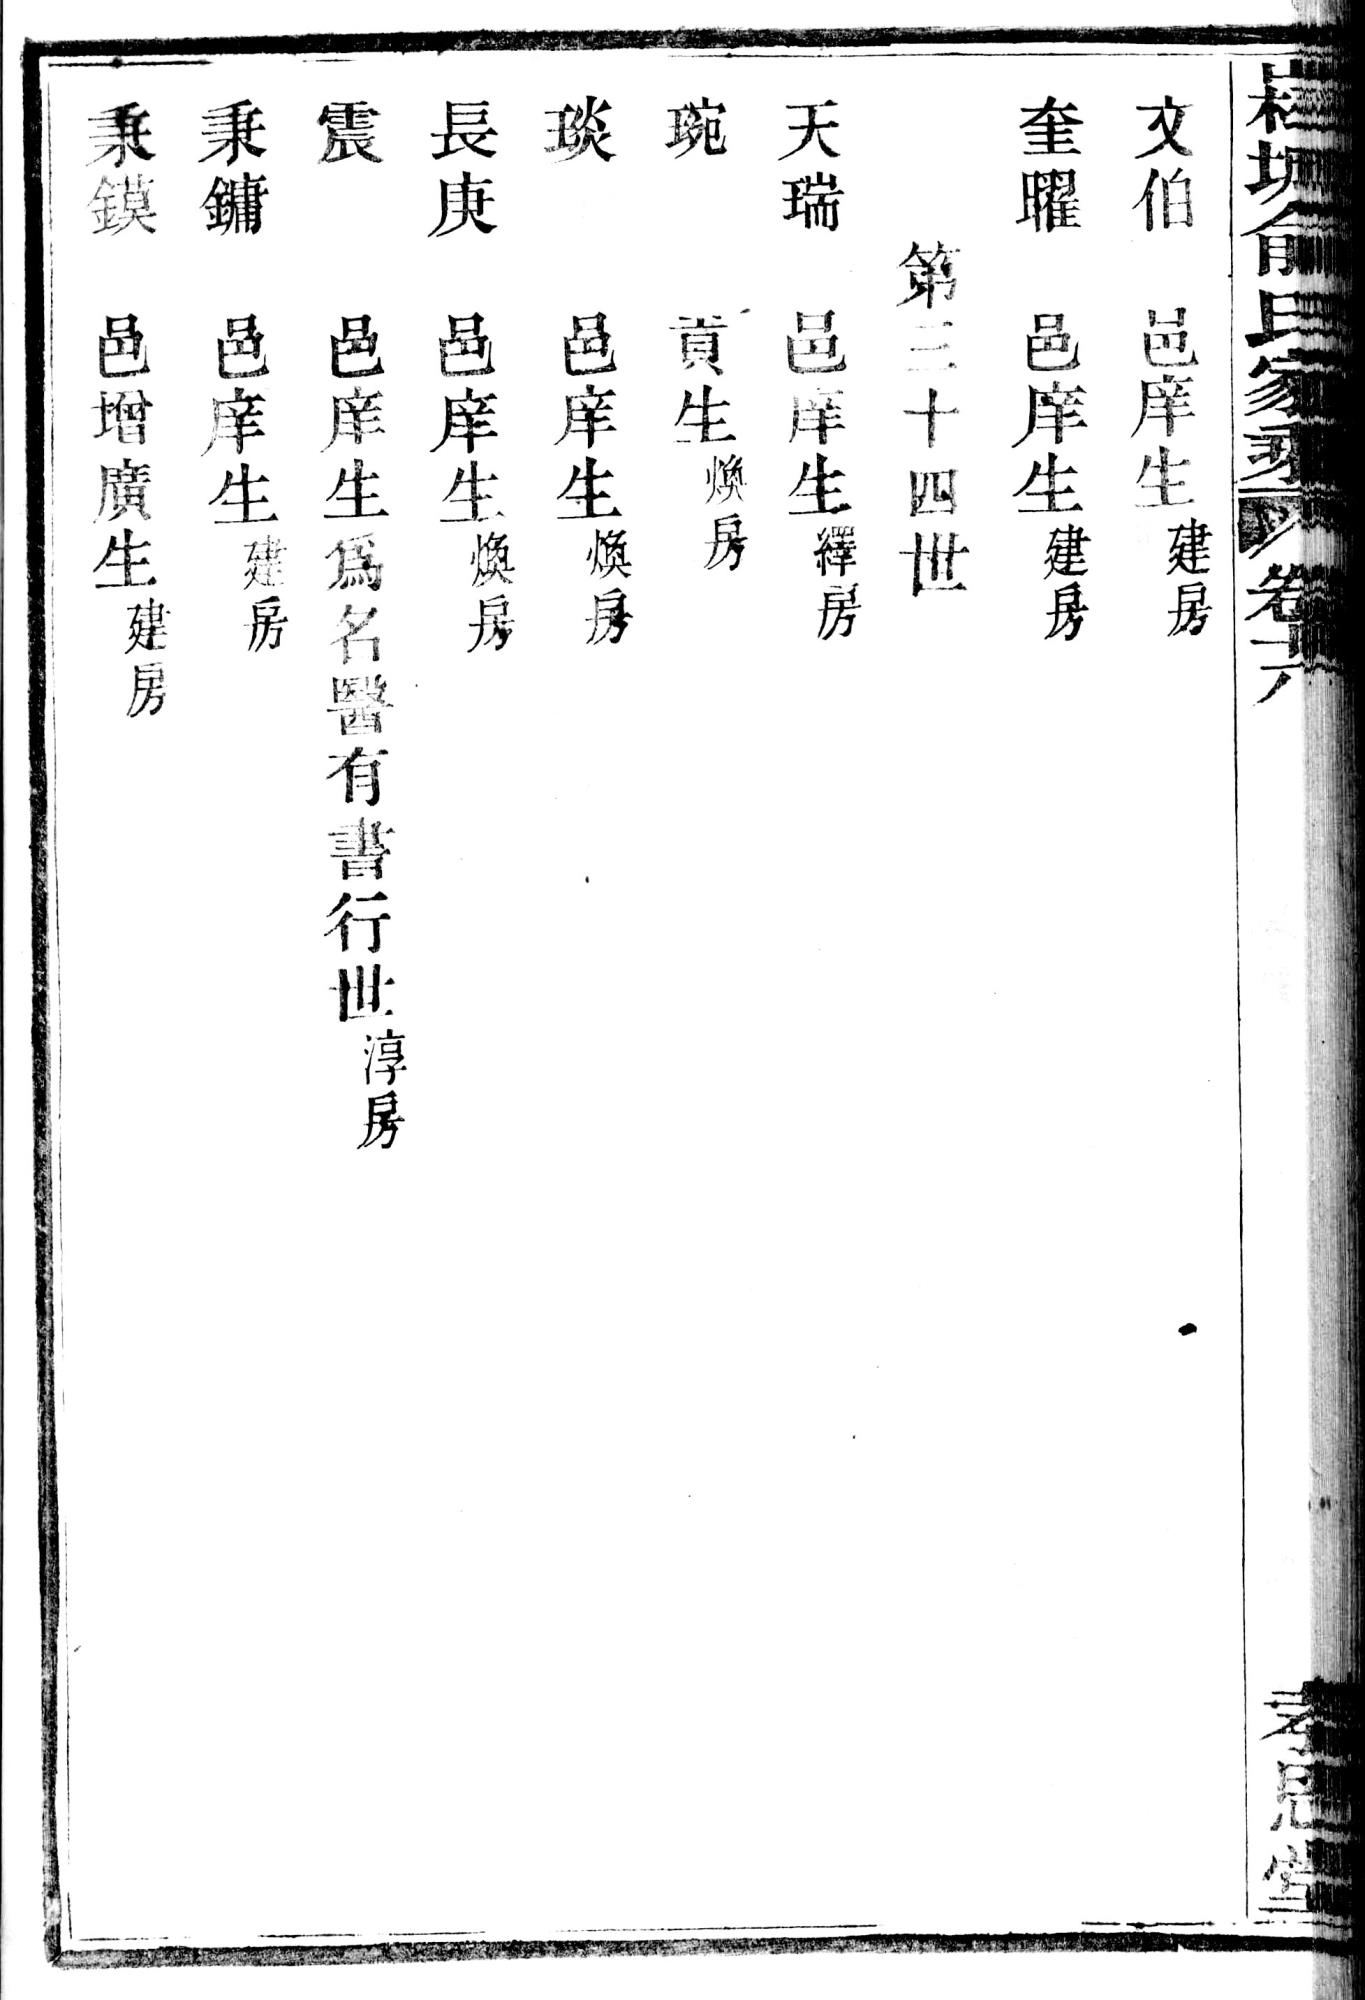 俞氏家乘 卷十六 孝思堂
文伯 邑庠生 建房
奎曜 邑庠生 建房
第三十四世
天瑞 邑庠生 繹房
琬 貢生 煥房
琰 邑庠生 煥房
長庚 邑庠生 煥房
震 邑庠生爲名醫有書行世 淳房
秉鏞 邑庠生 建房
秉鏌 邑增廣生 建房